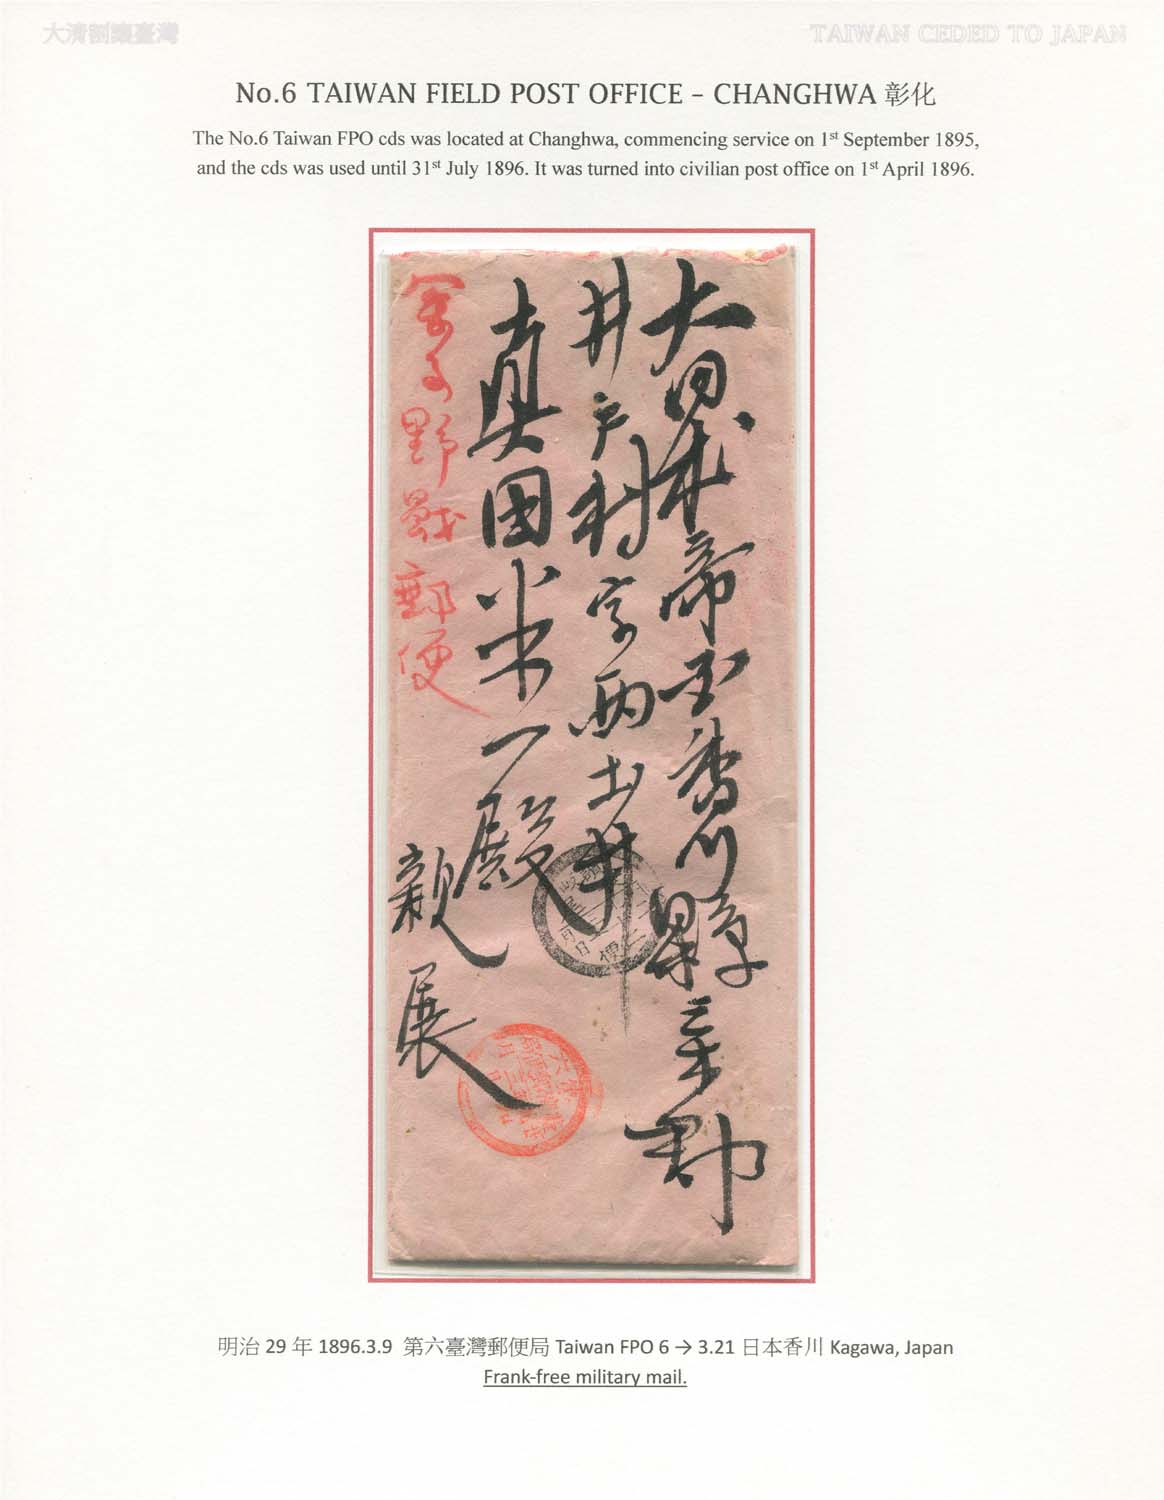 大清割讓臺灣
TAIWAN CEDED TO JAPAN
No.6 TAIWAN FIELD POST OFFICE – CHANGHWA 彰化
The No.6 Taiwan FPO cds was located at Changhwa, commencing service on 1st September 1895,
and the cds was used until 31st July 1896. It was turned into civilian post office on 1st April 1896.
大日本帝国香川縣三木郡
井戸村字両土井
真国米一殿
親展
軍事野戦郵便
明治 29 年 1896.3.9 第六臺灣郵便局 Taiwan FPO 6 → 3.21 日本香川 Kagawa, Japan
Frank-free military mail.